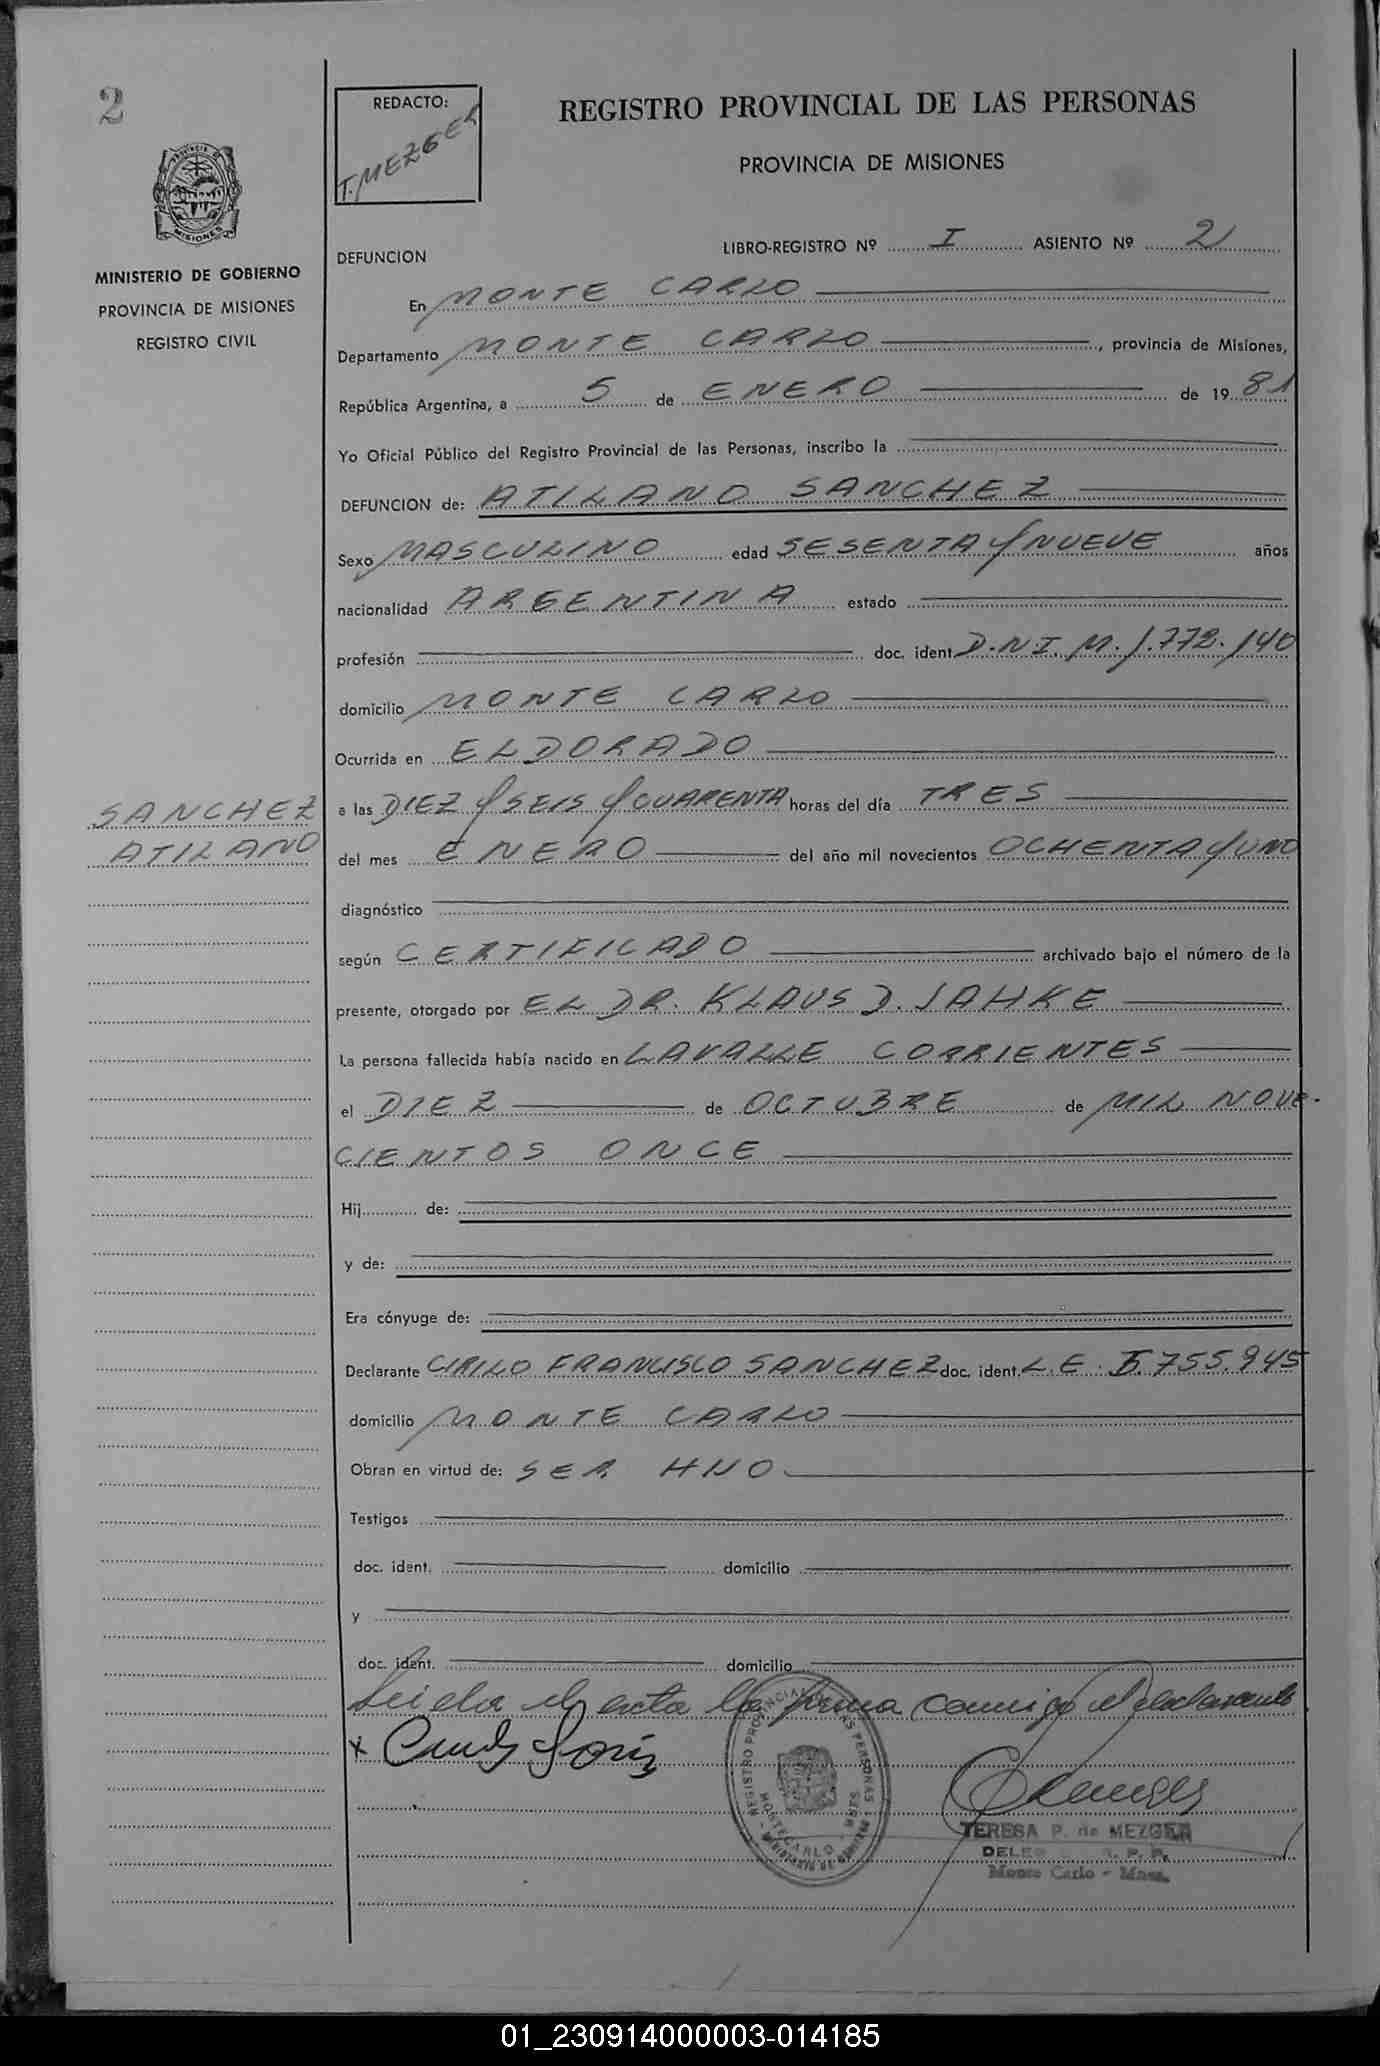 2
REDACTO:
T. MEZGER
REGISTRO PROVINCIAL DE LAS PERSONAS
PROVINCIA DE MISIONES
PROVINCIA DE
MISIONES
MINISTERIO DE GOBIERNO
PROVINCIA DE MISIONES
REGISTRO CIVIL
DEFUNCION
LIBRO-REGISTRO Nº I ASIENTO Nº 2
En MONTE CARLO
Departamento MONTE CARLO, provincia de Misiones,
República Argentina, a 5 de ENERO de 1981
Yo Oficial Público del Registro Provincial de las Personas, inscribo la
DEFUNCION de: ATILANO SANCHEZ
Sexo MASCULINO edad SESENTA Y NUEVE años
nacionalidad ARGENTINA estado
profesión doc. ident. D.N.I. M. 1.772.140
domicilio MONTE CARLO
Ocurrida en ELDORADO
SANCHEZ
ATILANO
a las DIEZ Y SEIS Y CUARENTA horas del día TRES
del mes ENERO del año mil novecientos OCHENTA Y UNO
diagnóstico
según CERTIFICADO archivado bajo el número de la
presente, otorgado por EL DR. KLAUS D. JAHKE
La persona fallecida había nacido en LAVALLE CORRIENTES
el DIEZ de OCTUBRE de MIL NOVE-
CIENTOS ONCE
Hij de:
y de:
Era cónyuge de:
Declarante CIRILO FRANCISCO SANCHEZ doc. ident. L.E. 5.755.945
domicilio MONTE CARLO
Obran en virtud de: SER HNO
Testigos
doc. ident. domicilio
y
doc. ident. domicilio
Leida el acta la firma conmigo el declarante
x
REGISTRO PROVINCIAL DE LAS PERSONAS
MONTECARLO - MNES
MINISTERIO DE GOBIERNO
TERESA P. de MEZGER
Monte Carlo - Mnes.
01_230914000003-014185